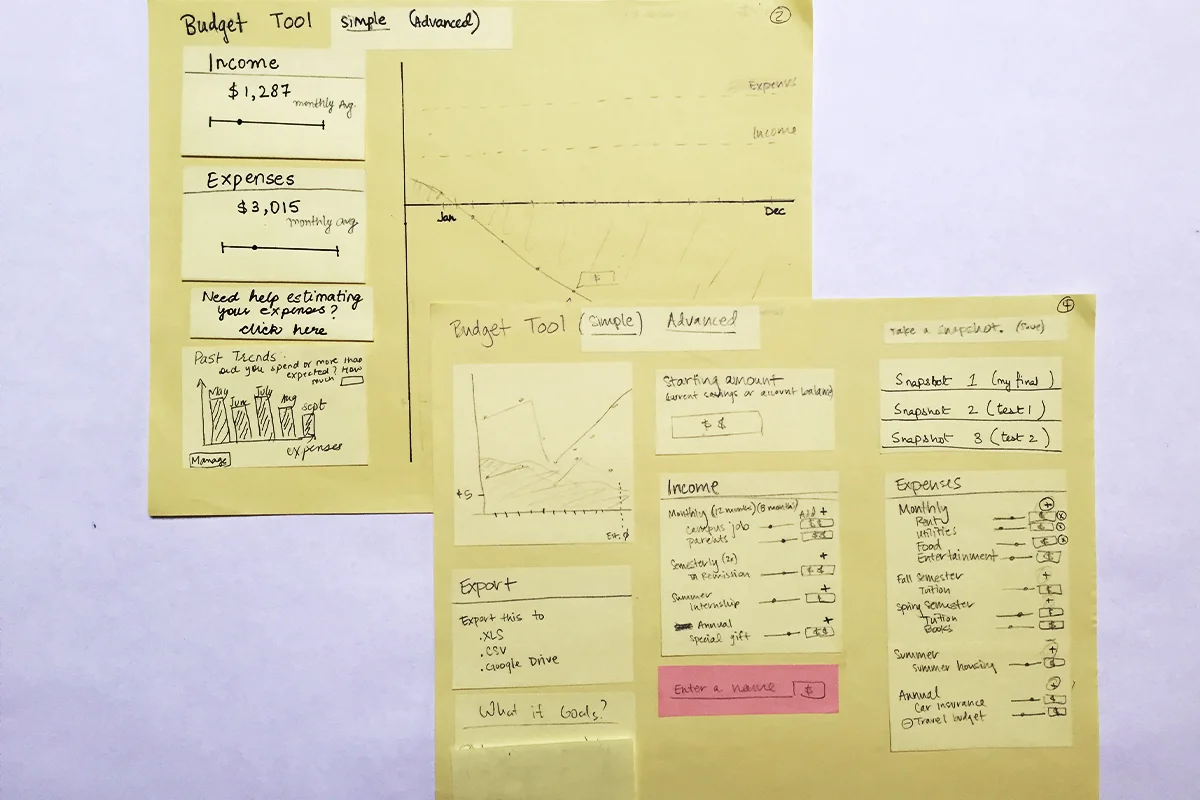 Budget Tool Simple (Advanced)
2
Income
$1,287
monthly Avg.
Expenses
$3,015
monthly avg
Need help estimating
your expenses?
click here
Past Trends
Did you spend or more than
expected? How
much
May
June
July
Aug
Sept
expenses
Manage
Expenses
Income
Jan
Dec
$
4
Budget Tool (Simple) Advanced
Take a snapshot. (save)
Est.
Export
Export this to
.XLS
.CSV
.Google Drive
What if Goals?
Starting amount
current savings or account balance
$ $
Income
Monthly (12 months) (8 months) Add +
campus job $$
parents $$
Semesterly (2x) +
Remission $$
Summer +
Internship $
Annual +
special gift $$
Enter a name $
Snapshot 1 (my final)
Snapshot 2 (test 1)
Snapshot 3 (test 2)
Expenses
Monthly +
Rent $ x
utilities $ x
Food $ x
Entertainment $
Fall Semester +
Tuition $
Spring Semester +
Tuition $
Books $
Summer +
summer housing $
Annual +
Car insurance $
Travel budget $